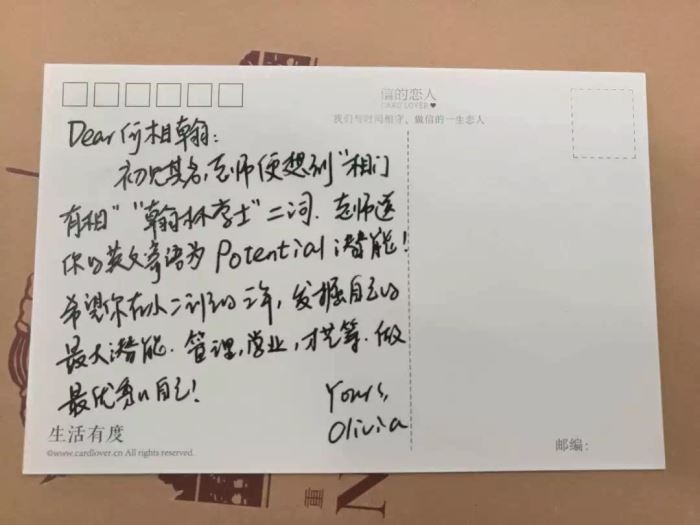 信的恋人
CARD LOVER♥
我们与时间相守，做信的一生恋人
Dear 何相翰：
初见其名，老师便想到“相门
有相”“翰林学士”二词．老师送
你的英文寄语为 Potential 潜能！
希望你在小二到的二年，发掘自己的
最大潜能．管理，学业，才艺等．做
最优秀的自己！
Yours,
Olivia
生活有度
©www.cardlover.cn All rights reserved.
邮编：
重
N